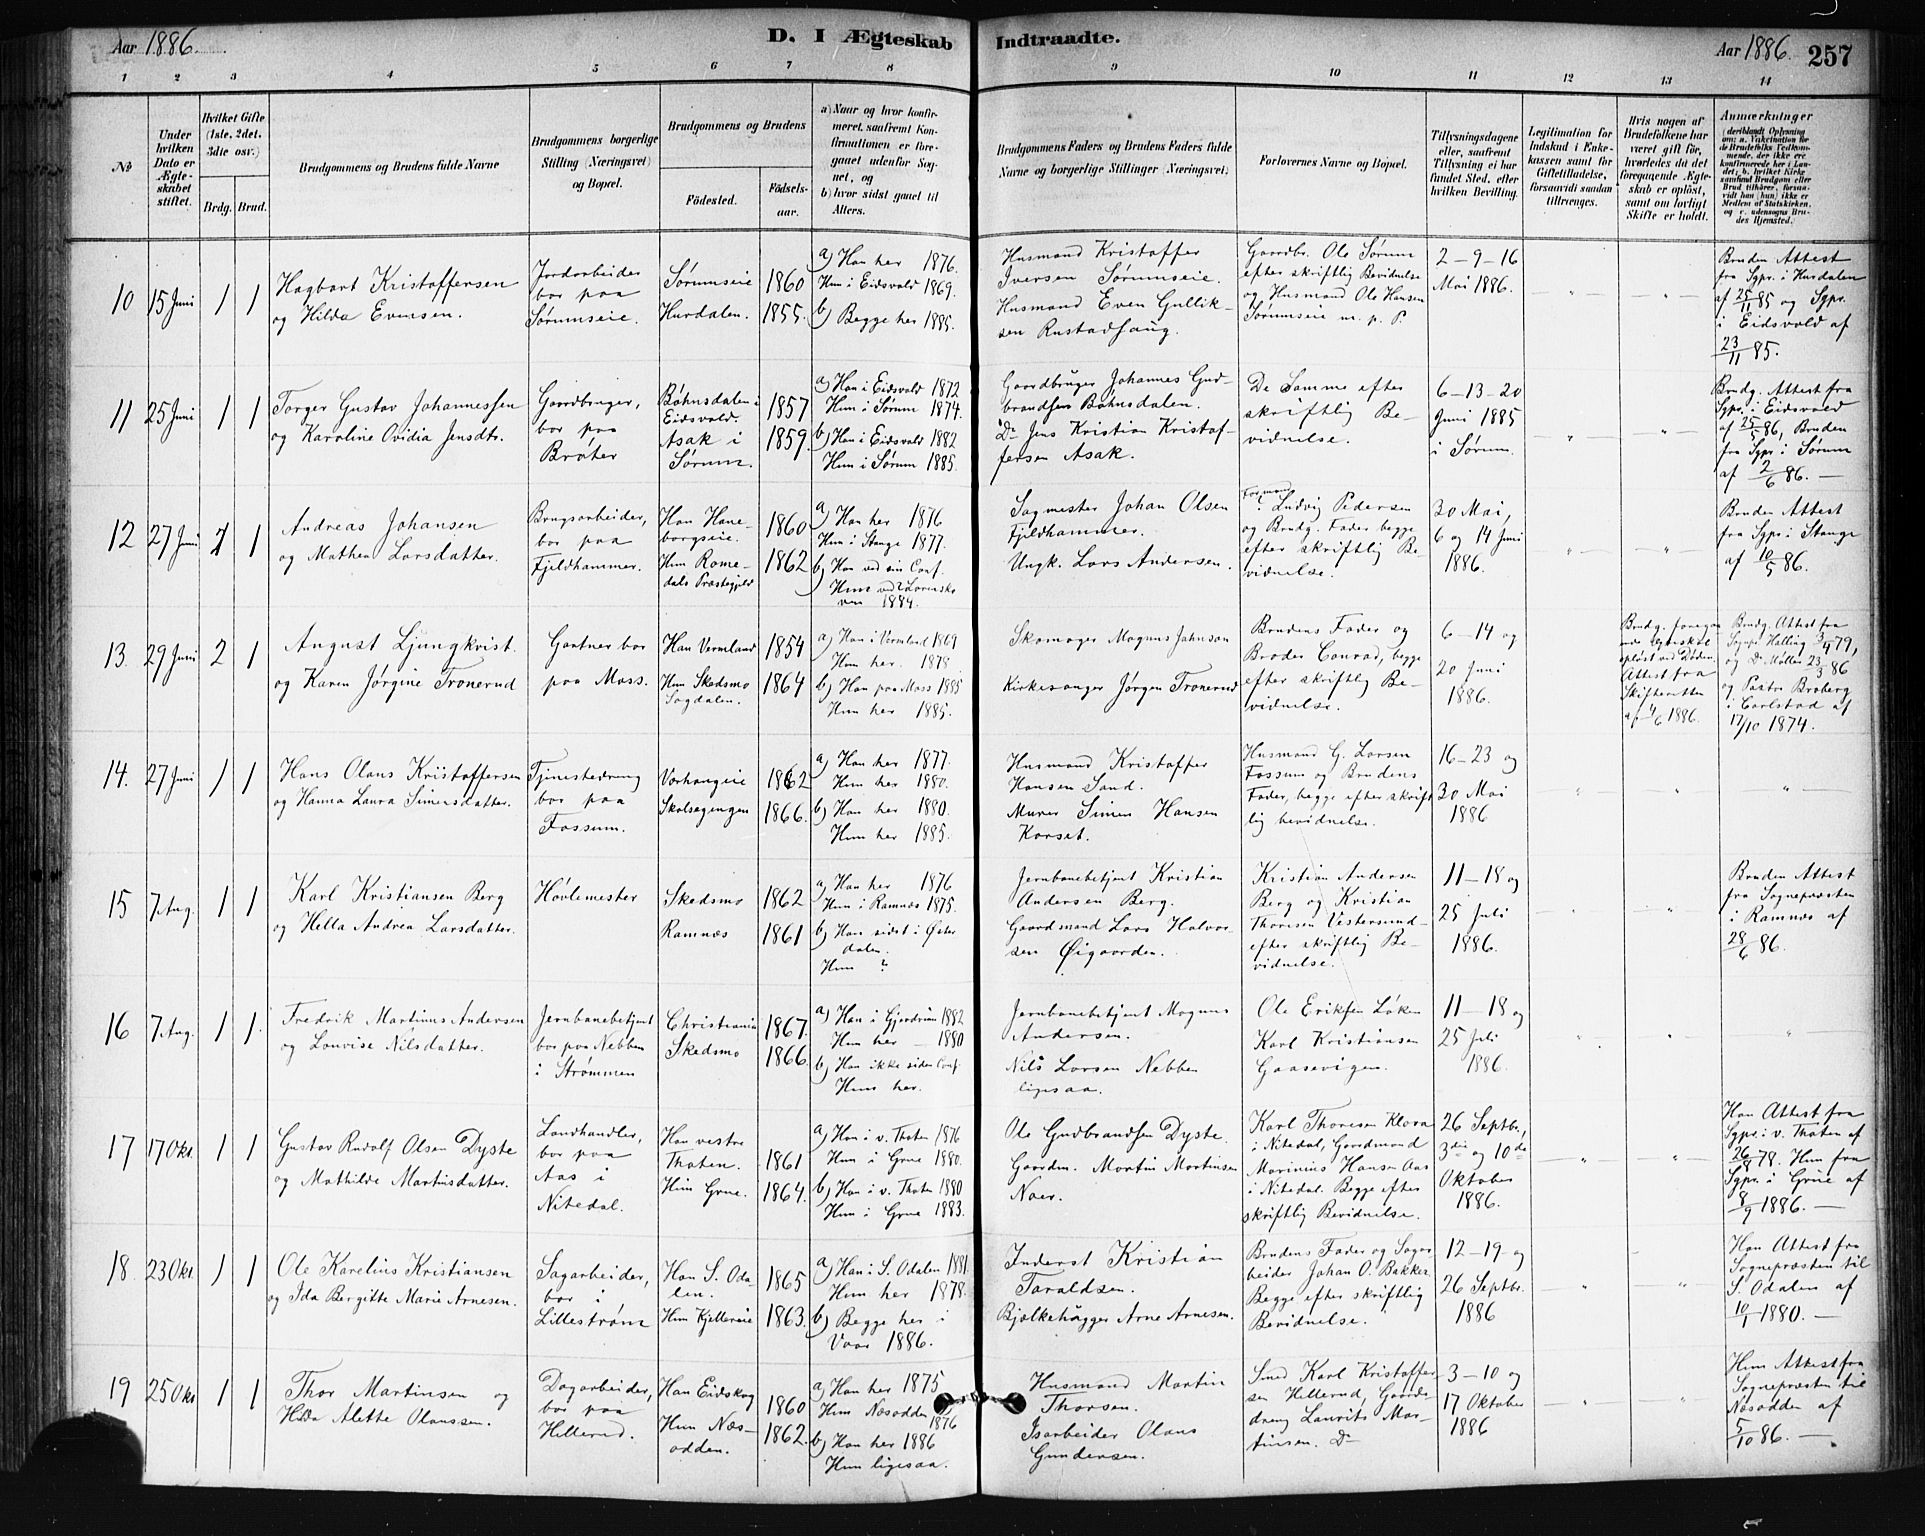 Aar 1886.
D. I Ægteskab Indtraadte.
Aar 1886.
257
1 2 3 4 5 6 7 8 9 10 11 12 13 14
No
Under hvilken Dato er Ægteskabet stiftet.
Hvilket Gifte (1ste, 2det, 3die osv.)
Brdg. Brud.
Brudgommens og Brudens fulde Navne
Brudgommens borgerlige Stilling (Næringsvei) og Bopæl.
Brudgommens og Brudens
Födested.
Födsels-aar.
a) Naar og hvor konfirmeret, saafremt Konfirmationen er foregaaet udenfor Sognet, og
b) hvor sidst gaaet til Alters.
Brudgommens Faders og Brudens Faders fulde Navne og borgerlige Stillinger (Næringsvei).
Forlovernes Navne og Bopæl.
Tillysningsdagene eller, saafremt Tillysning ei har fundet Sted, efter hvilken Bevilling.
Legitimation for Indskud i Enkekassen samt for Giftetilladelse, forsaavidt saadan tiltrænges.
Hvis nogen af Brudefolkene har været gift før, hvorledes da det foregaaende Ægteskab er opløst, samt om lovligt Skifte er holdt.
Anmærkninger
10
15 Juni
1 1
Hagbart Kristoffersen
og Hilda Evensen.
Jordarbeider
bor paa
Sørumseie.
Sørumseie 1860
Hurdalen. 1855.
a) Han her 1876.
Hun i Eidsvold 1869.
b) Begge her 1885.
Husmand Kristoffer
Iversen Sørumseie.
Husmand Even Gullik-
sen Rustadhaug.
Gaardbr. Ole Sørum
efter skriftlig Bevidnelse
og Husmand Ole Hansen
Sørumseie m. p. P.
2-9-16
Mai 1886.
Bruden Attest
fra Sgpr. i Hurdalen
af 25/11 85 og Sgpr.
i Eidsvold af
23/11 85.
11
25 Juni
1 1
Torger Gustav Johannessen
og Karoline Ovidia Jensdtr.
Gaardbruger,
bor paa
Bråter
Bøhnsdalen i
Eidsvold. 1857
Asak i
Sørum. 1859.
a) Han i Eidsvold 1872
Hun i Sørum 1874.
b) Han i Eidsvold 1882
Hun i Sørum 1885.
Gaardbruger Johannes Gud-
brandsen Bøhnsdalen.
Do Jens Kristian Kristof-
fersen Asak.
De Samme efter
skriftlig Be-
vidnelse.
6-13-20
Juni 1885
i Sørum.
Brudg. Attest fra
Sgpr. i Eidsvold
af 25/5 86, Bruden
fra Sgpr. i Sørum
af 2/6 86. —
12
27 Juni
1 1
Andreas Johansen
og Mathea Larsdatter.
Brugsarbeider,
bor paa
Fjeldhammer.
Han Hane-
borgseie. 1860
Hun Rome-
dals Præstegjeld 1862
a) Han her 1876
Hun i Stange 1877.
b) Han ved sin Conf.
Hun ved Lørensko
1884.
Sagmester Johan Olsen
Fjeldhammer.
Ungk. Lars Andersen.
Formand Ludvig Pedersen
og Brudg. Fader begge
efter skriftlig Be-
vidnelse.
30 Mai,
6 og 14 Juni
1886.
Bruden Attest
fra Sgpr. i Stange
af 10/5 86.
13.
29 Juni
2 1
August Ljungkvist.
og Karen Jørgine Tronerud
Gartner bor
paa Moss.
Han Vermland 1854
Hun Skedsmo
Sagdalen. 1864
a) Han i Vermland 1869
Hun her. 1878
b) Han paa Moss 1885
Hun her 1885.
Skomager Magnus Johnson
Kirkesanger Jørgen Tronerud
Brudens Fader og
Broder Conrad, begge
efter skriftlig Be-
vidnelse.
6-14 og
20 Juni
1886.
Brudg. foregaa-
ende Ægteskab
opløst ved Døden.
Attest fra
Skifteretten
af 4/6 1886.
Brudg. Attest fra
Sognepr. Helling 3/4 79,
og Do Møller 23/3 86
og Pastor Broberg
i Carlstad af
17/10 1874.
14.
27 Juni
1 1
Hans Olaus Kristoffersen
og Hanna Laura Simensdatter.
Tjenestedreng
bor paa
Fossum.
Vorhaugeie 1862
Skolsegengen 1866.
a) Han her 1877.
Hun her 1880.
b) Han her 1880.
Hun her 1885.
Husmand Kristoffer
Hansen Sand.
Murer Simen Hansen
Korset.
Husmand G. Larsen
Fossum og Brudens
Fader, begge efter skrift
lig bevidnelse.
16-23 og
30 Mai
1886
15
7 Aug.
1 1
Karl Kristiansen Berg
og Hella Andrea Larsdatter.
Høvlemester
Skedsmo 1862
Ramnæs 1861
a) Han her 1876
Hun i Ramnæs 1875.
b) Han sidst i Øster
dalen.
Hun ?
Jernbanebetjent Kristian
Andersen Berg.
Gaardmand Lars Halvor-
sen Øigaarden.
Kristian Andersen
Berg og Kristian
Thoresen Vestersund
efter skriftlig Be-
vidnelse.
11-18 og
25 Juli
1886.
Bruden Attest
fra Sognepræsten
i Ramnæs af
28/6 86.
16
7 Aug.
1 1.
Fredrik Martinus Andersen
og Lovise Nilsdatter.
Jernbanebetjent
bor paa Nebben
i Strømmen
Christiania 1867.
Skedsmo 1866.
a) Han i Gjerdrum 1882
Hun her — 1880
b) Han ikke siden Conf.
Hun her.
Jernbanebetjent Magnus
Andersen.
Nils Larsen Nebben
ligesaa.
Ole Eriksen Løken
Karl Kristiansen
Gaasevigen.
11-18 og
25 Juli
1886.
17
17 Okt.
1 1
Gustav Rudolf Olsen Dyste
og Mathilde Martinsdatter.
Landhandler,
bor paa
Aas i
Nitedal.
Han vestre
Thoten. 1861
Hun Grue. 1864.
a) Han i v. Thoten 1876
Hun i Grue 1880.
b) Han i v. Thoten 1880
Hun i Grue 1883.
Ole Gudbrandsen Dyste.
Gaardm. Martin Martinsen
Noer.
Karl Thoresen Klova
i Nitedal, Gaardmand
Marinius Hansen Aas
i Nitedal. Begge efter
skriftlig Bevidnelse.
26 Septbr.,
3die og 10de
Oktober
1886.
Han Attest fra
Sgpr. i v. Thoten af
26/8 78. Hun fra
Sgpr. i Grue af
8/9 1886. —
18.
23 Okt.
1 1
Ole Karelius Kristiansen
og Ida Bergitte Marie Arnesen.
Sagarbeider,
bor i
Lillestrøm
Han S. Oda-
len. 1865
Hun Kjellereie 1863.
a) Han i S. Odalen 1881.
Hun her 1878.
b) Begge her i
Vaar 1886.
Inderst Kristian
Taraldsen.
Bjelkehugger Arne Arnesen.
Brudens Fader og Sagar-
beider Johan O. Bakken.
Begge efter skriftlig
Bevidnelse.
12-19 og
26 Septbr.
1886
Han Attest fra
Sognepræsten til
S. Odalen af
10/1 1880. —
19
25 Okt
1 1
Thor Martinsen og
Hilda Alette Olaussen.
Dagarbeider,
bor paa
Hellerud.
Han Eidskog 1860
Hun Næs-
odden. 1862.
a) Han her 1875
Hun Næsodden 1876
b) Han her 1886
Hun ligesaa.
Husmand Martin
Thorsen.
Isarbeider Olaus
Gundersen.
Smed Karl Kristoffer-
sen Hellerud, Gaards-
dreng Laurits Mar-
tinsen. Do
3-10 og
17 Oktober
1886
Hun Attest fra
Sognepræsten til
Næsodden af
5/10 86. —